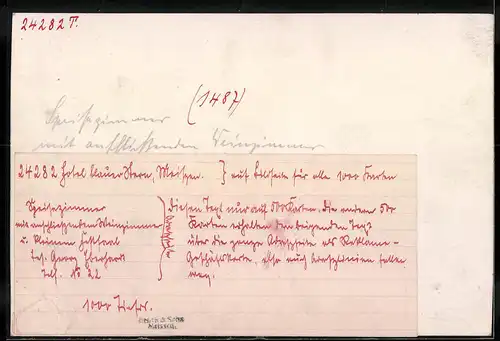 24282 T.
(1487)
Speisezimmer
mit anschließenden Weinzimmer
24282 Hotel blauer Stern, Meissen. } auf Bildseite für alle 1000 Karten
Speisezimmer
mit anschließendem Weinzimmer
u. kleinem Festsaal
Bes. Georg Eberhardt
Telf. No 22
Diesen Text nur auf 500 Karten. Die anderen 500
Karten erhalten den beiliegenden Text
über die ganze Adreßseite als Reklame-
Geschäftskarte, also auch Adreßlinien fallen
weg.
1000 Tiefdr.